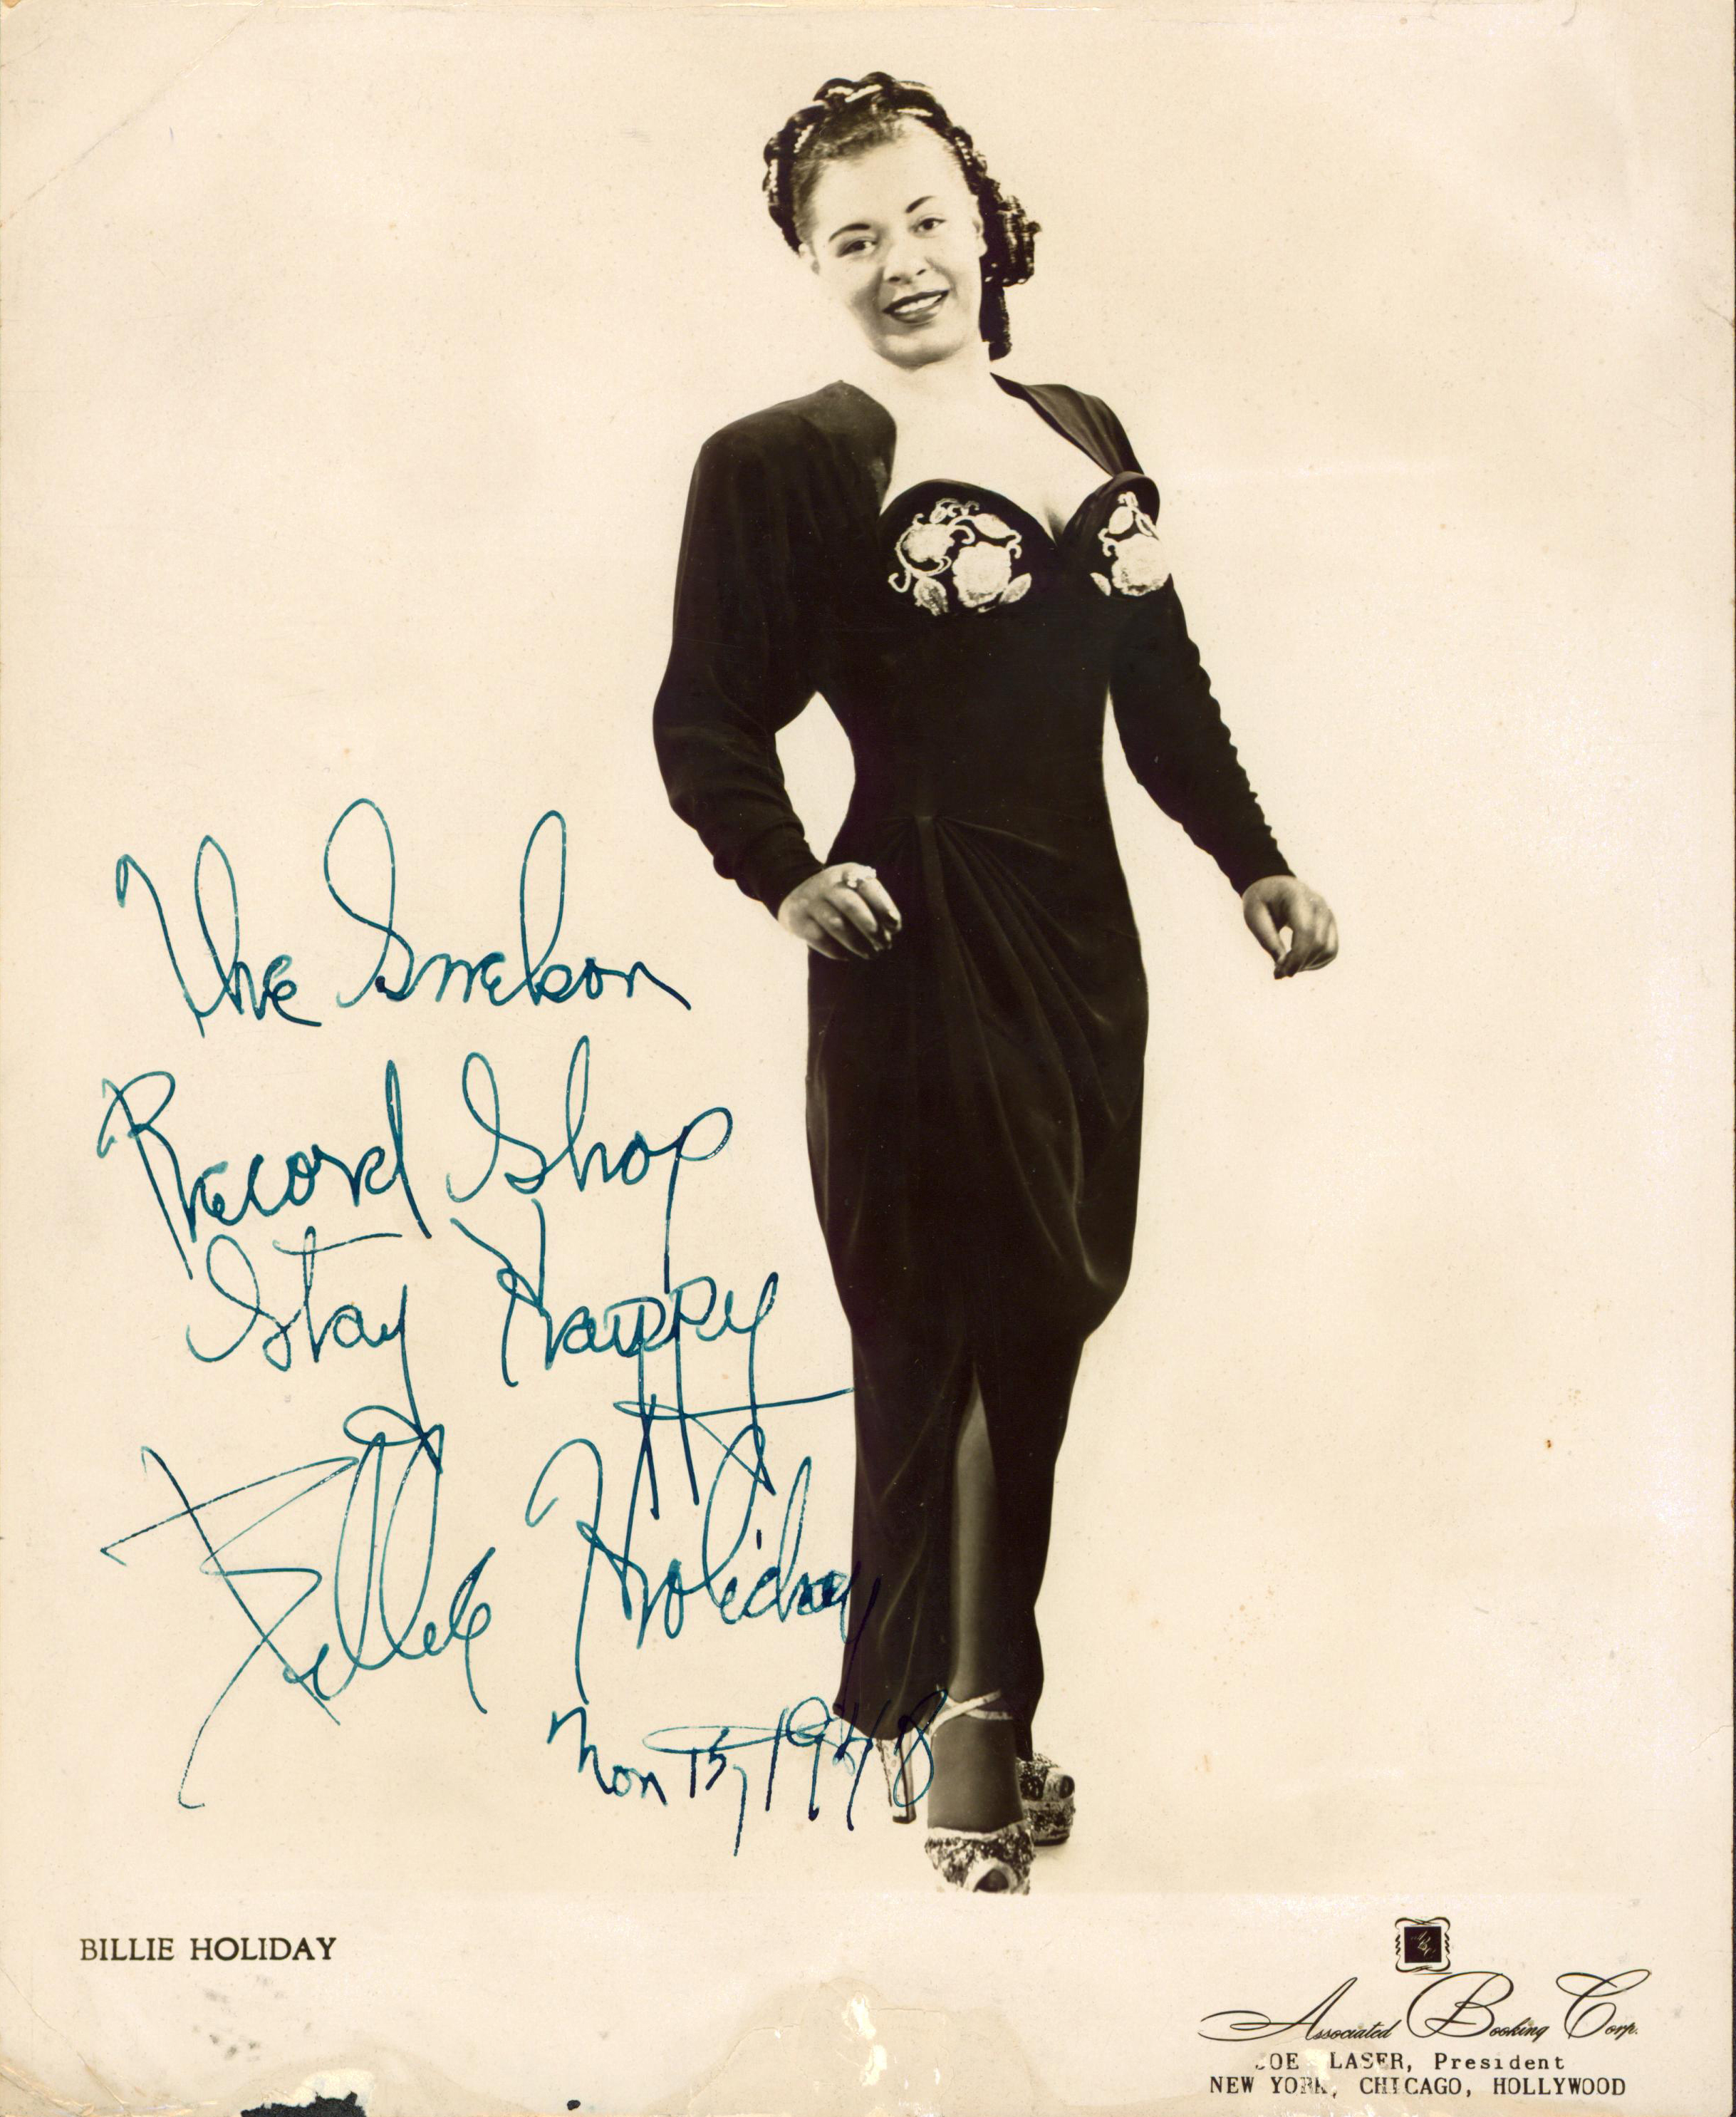 The Smelson
Record Shop
Stay Happy
Billie Holiday
Nov 15, 1948
BILLIE HOLIDAY
Associated Booking Corp.
JOE LASER, President
NEW YORK, CHICAGO, HOLLYWOOD